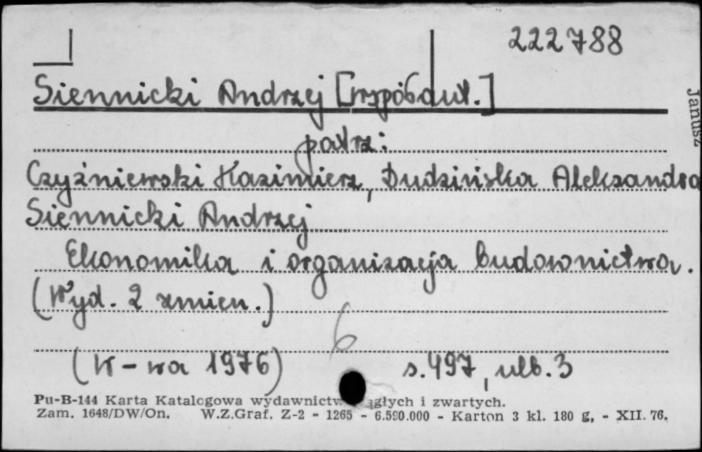 222788
Siennicki Andrzej [współaut.]
patrz:
Czyżniewski Kazimierz, Dudzińska Aleksandra
Siennicki Andrzej
Ekonomika i organizacja budownictwa.
(Wyd. 2 zmien.)
6
(W-wa 1976) s. 497, nlb. 3
Pu-B-144 Karta Katalogowa wydawnictw ągłych i zwartych.
Zam. 1648/DW/On. W.Z.Graf. Z-2 - 1265 - 6.590.000 - Karton 3 kl. 180 g, - XII. 76.
Janusz